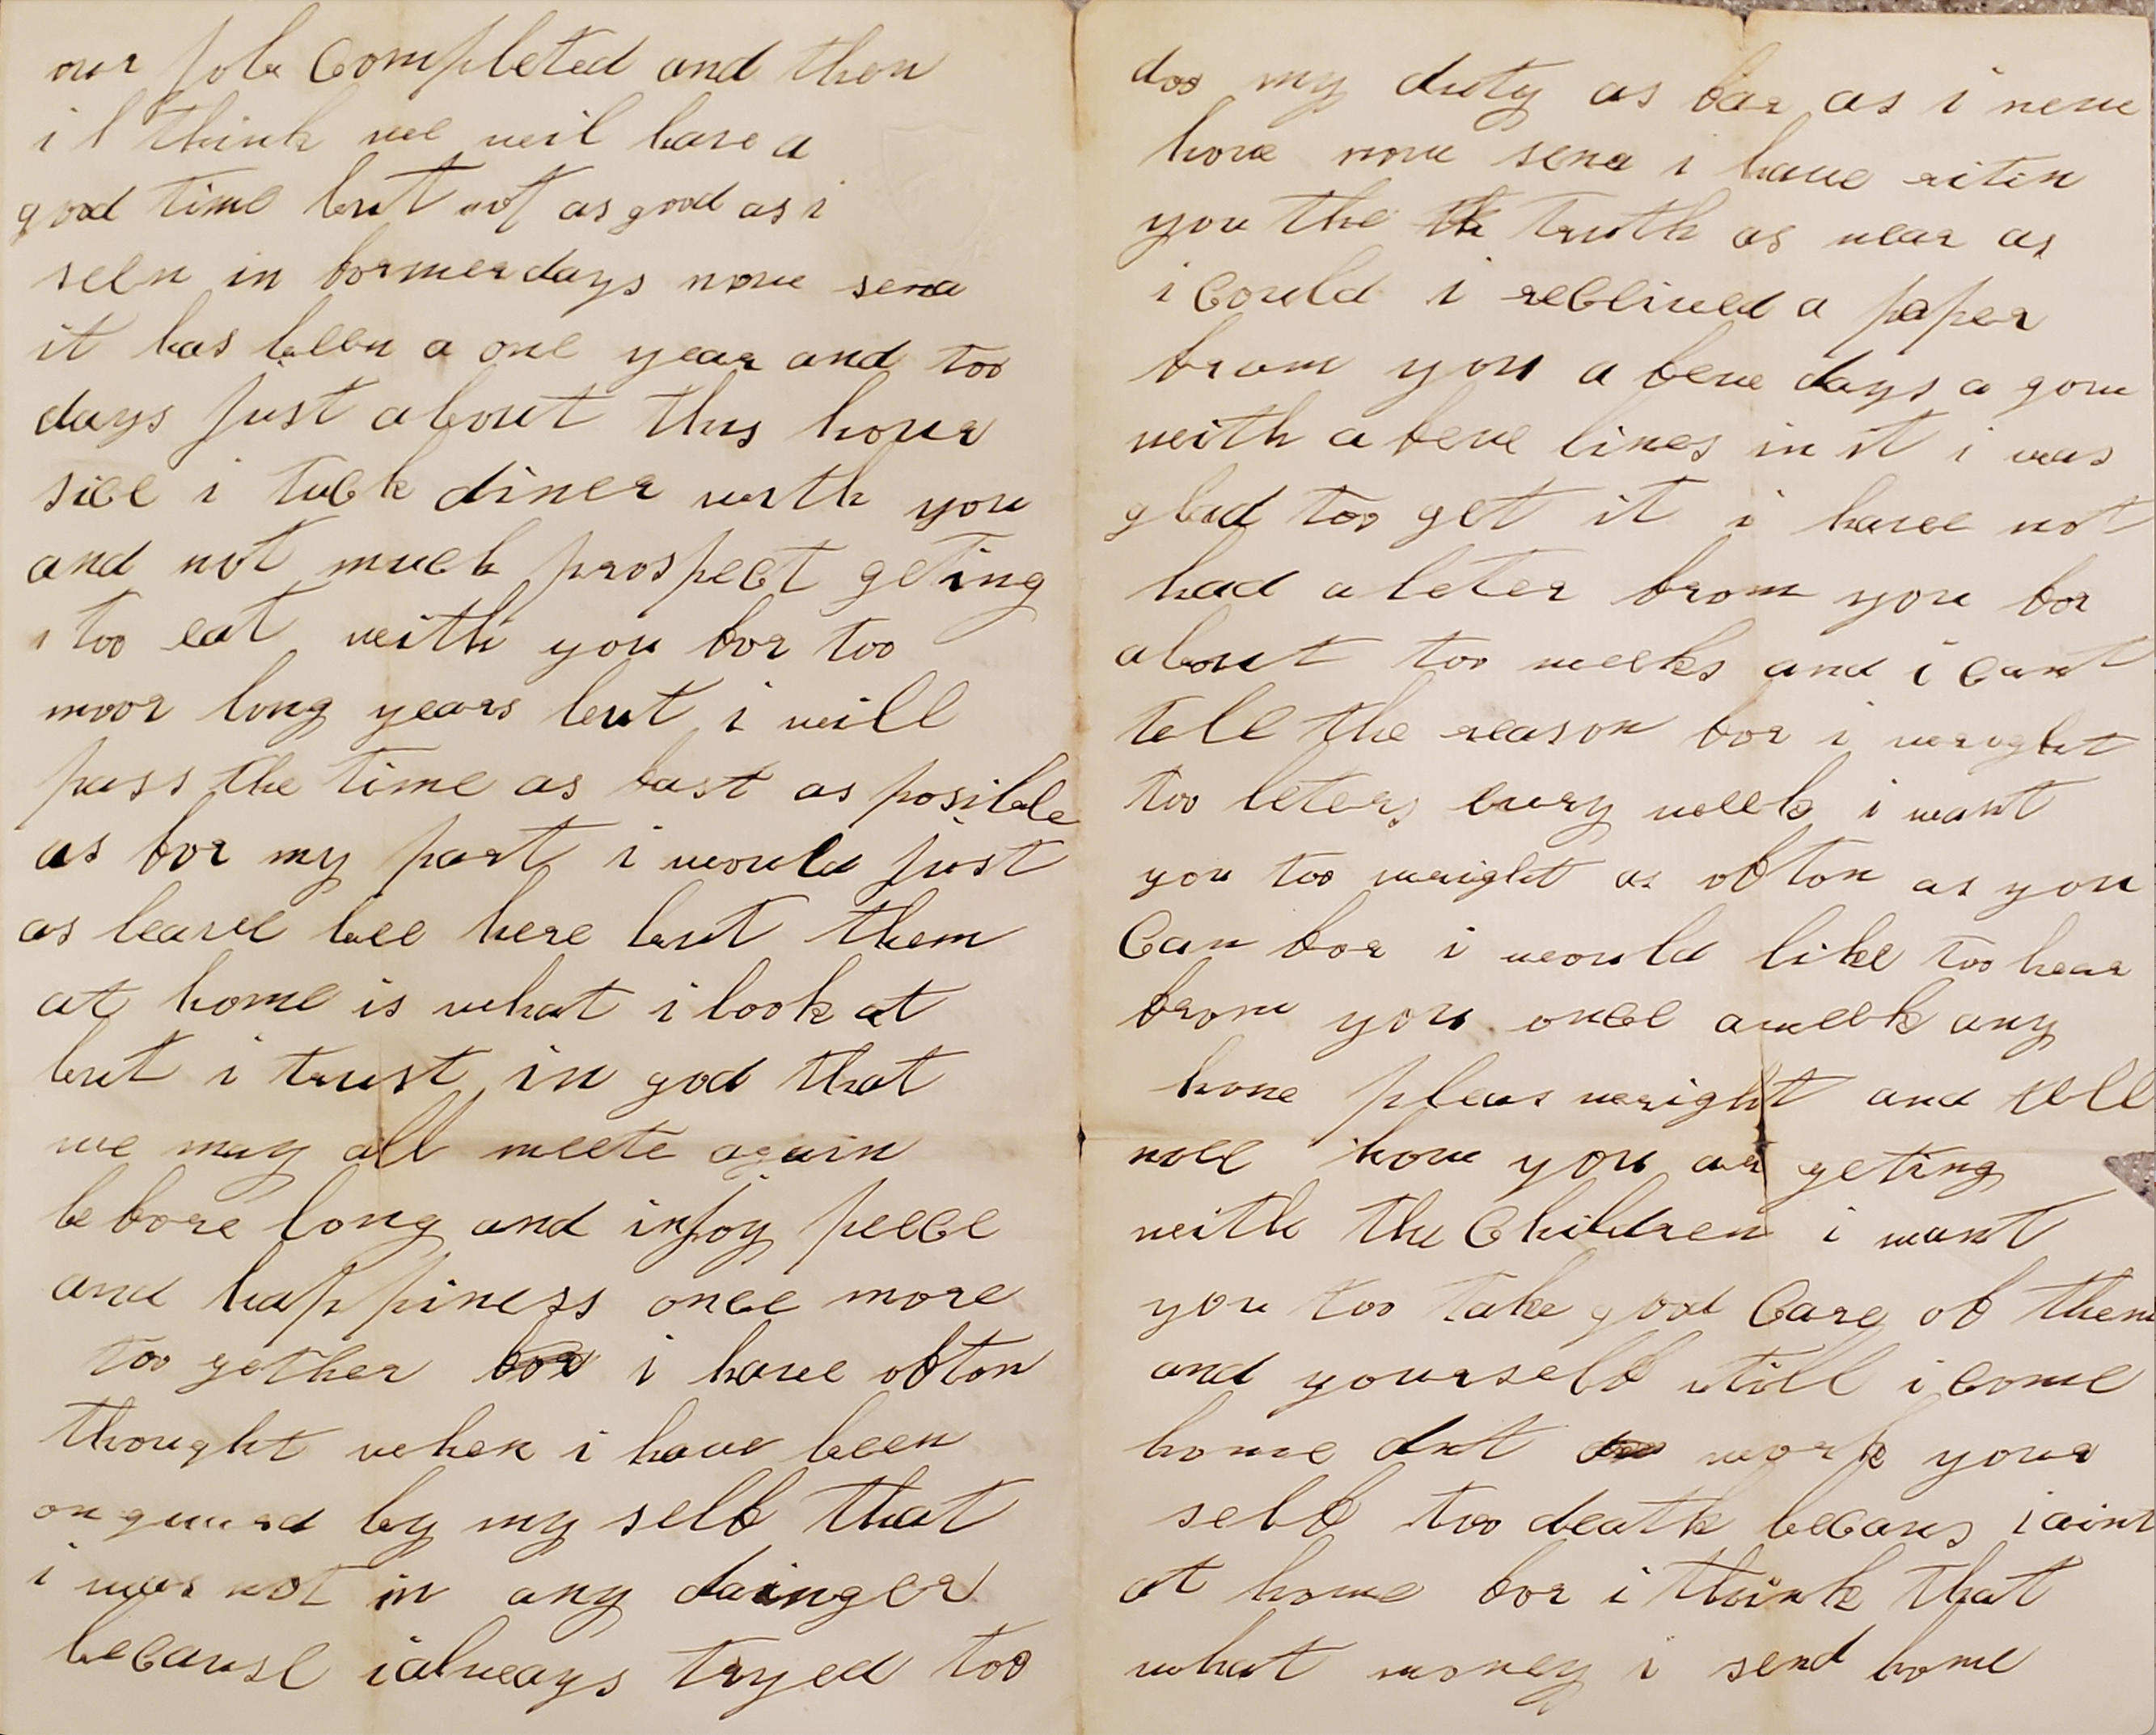 our job Completed and then
i l think we wil have a
good time but not as good as i
seen in former days now sena
it has been a one year and too
days just about this hour
sice i tuck diner with you
and not much prospect geting
too eat with you for too
moor long years but i will
pass the time as fast as posible
as for my part i would just
as leave bee here but them
at home is what i look at
but i trust in god that
we may all meete again
before long and injoy peece
and happiness once more
too gether for i have ofton
thought when i have been
on guard by my self that
i was not in any dainger
because i always tryed too
doo my duty as far as i new
how now sena i have riten
you the th truth as near as
i Could i reccived a paper
from you a few days a gow
with a few lines in it i was
glad too get it i have not
had a leter from you for
about too weeks and i cant
tell the reason for i wright
too leters evry week i want
you too wright as ofton as you
Can for i would like too hear
from you once a week any
how pleas wright and tell
mee how you ar geting
with the Children i want
you too take good Care of them
and yourself till i come
home dnt doo work your
self too death becaus i aint
at home for i think that
what money i send home